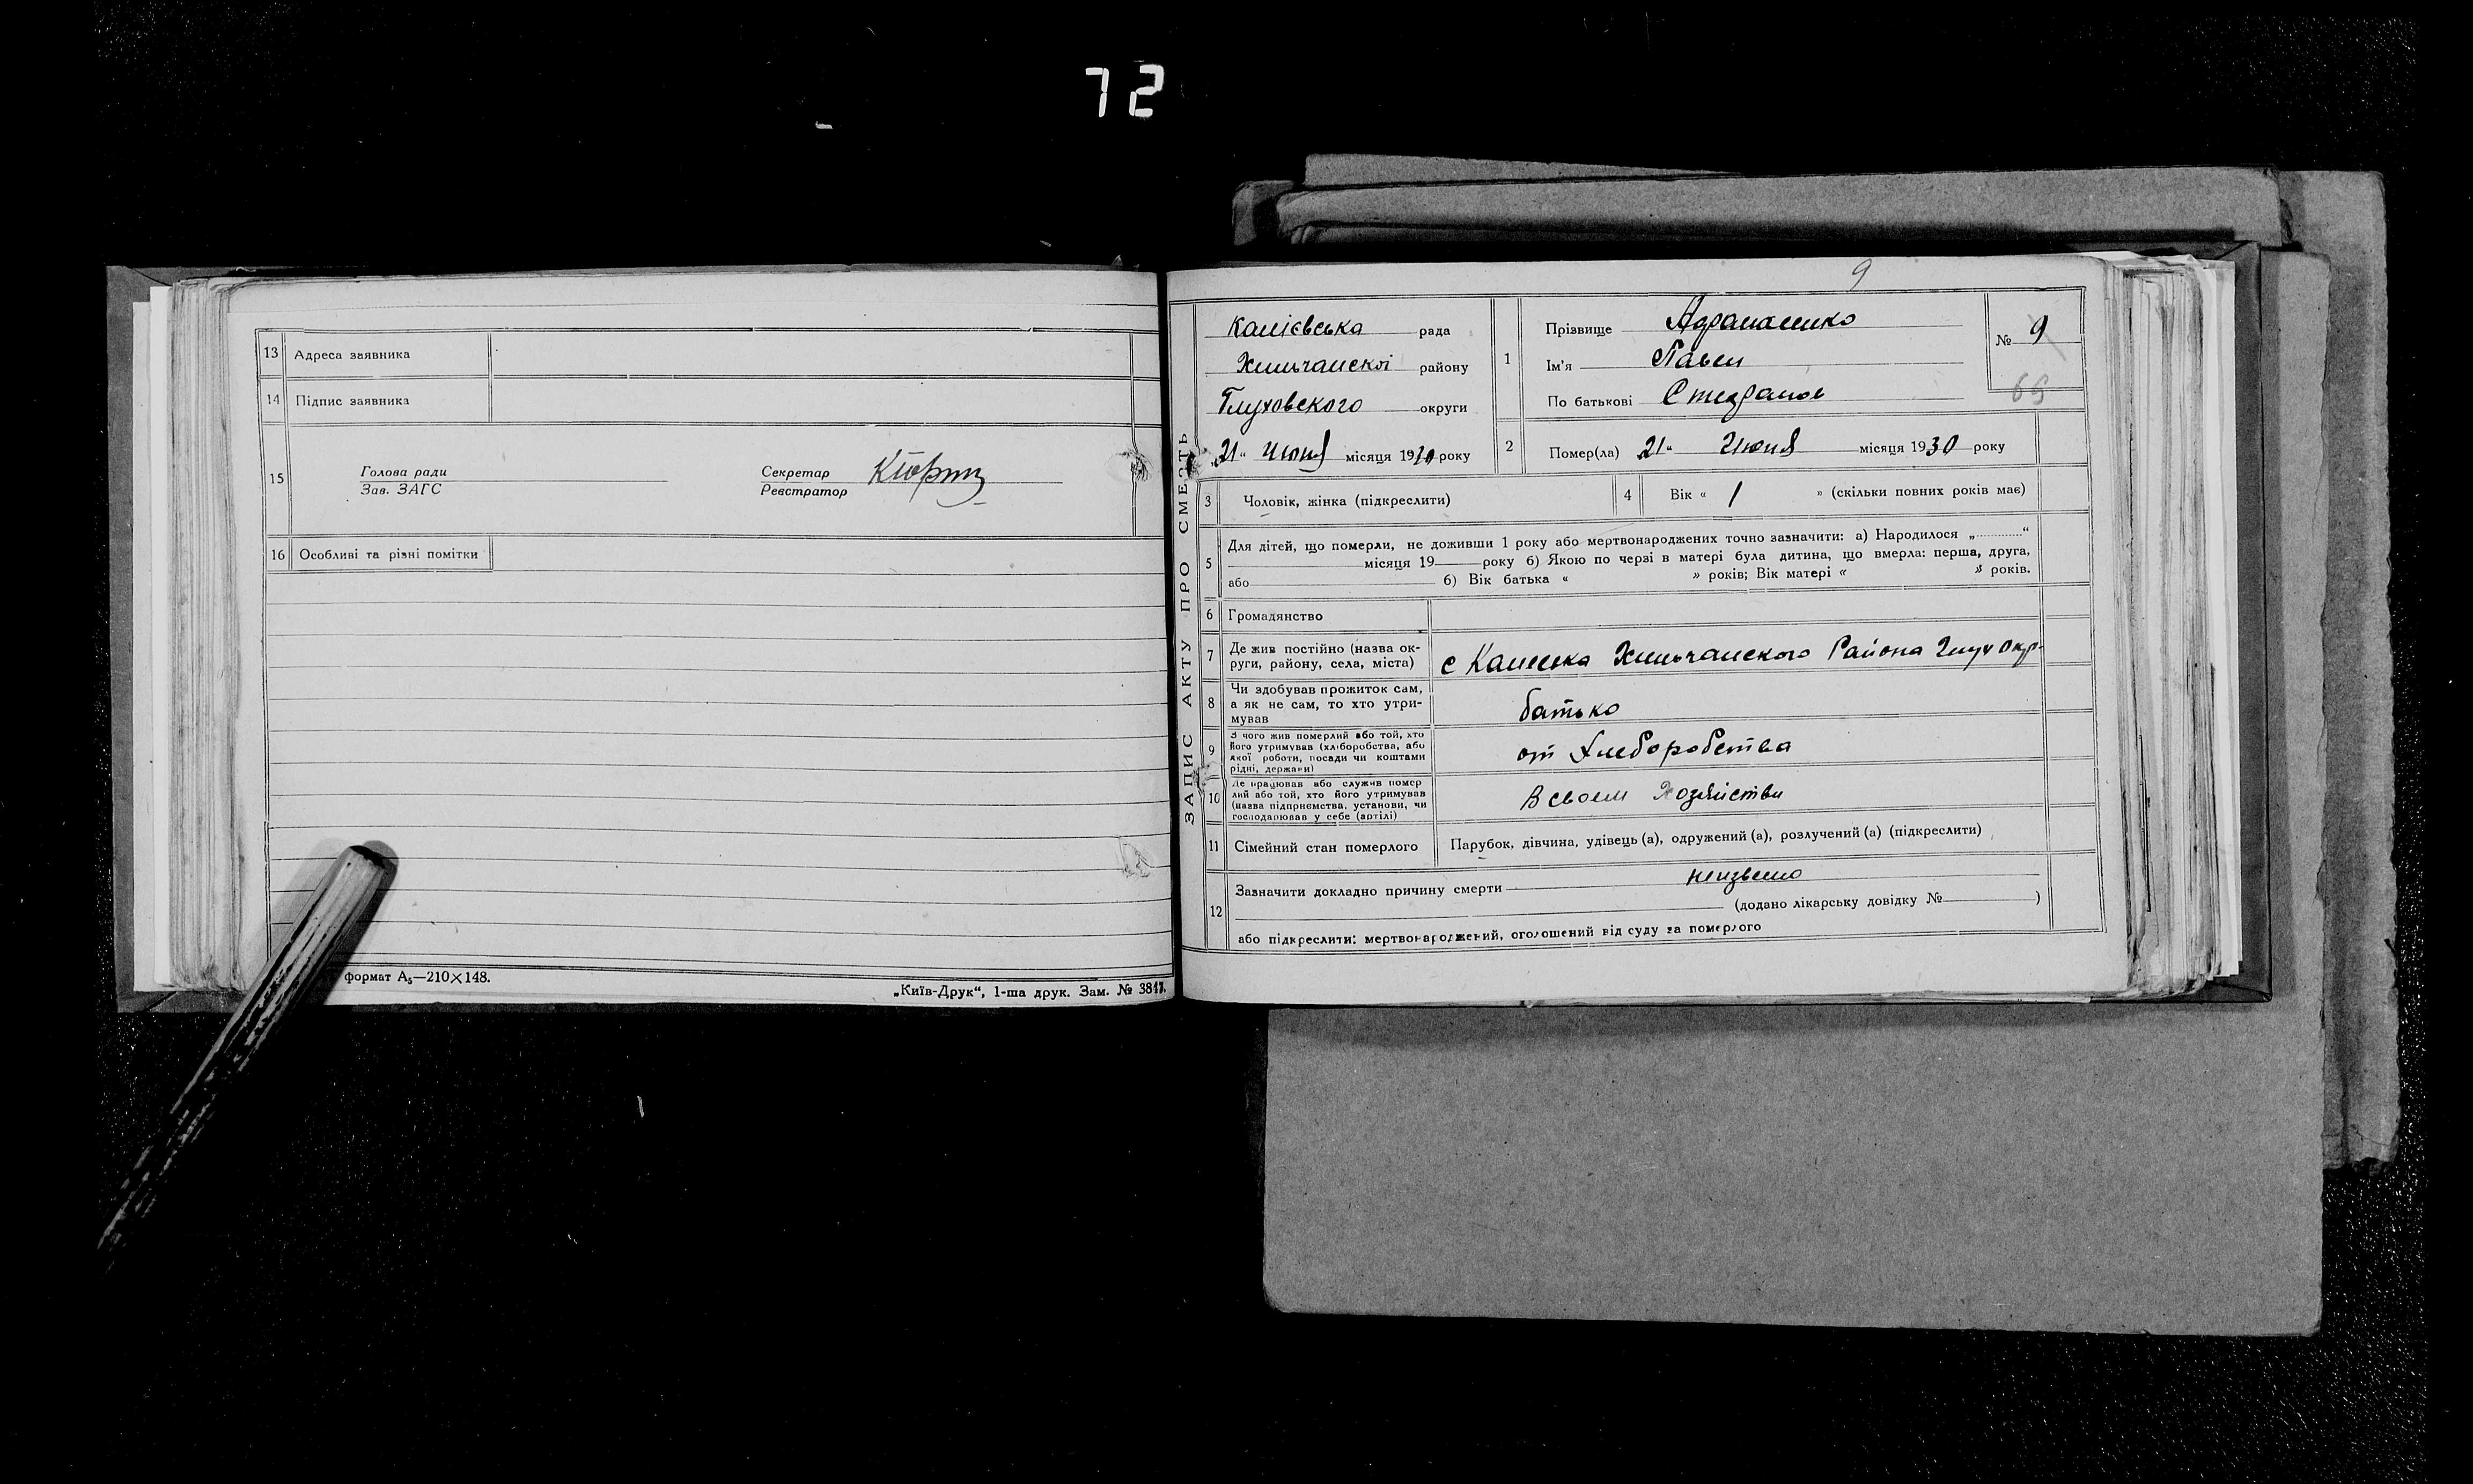 72
13 Адреса заявника
14 Підпис заявника
15 Голова ради
Зав. ЗАГС
Секретар
Реєстратор
16 Особливі та різні помітки
формат А₅—210×148.
„Київ-Друк“, 1-ша друк. Зам. № 3847.
9
ЗАПИС АКТУ ПРО СМЕРТЬ
рада
району
Глуховского округи
„21“ Июня місяця 1930 року
1 Прізвище Афанасенко
Ім'я Павел
По батькові Стефанов
№ 9
69
2 Помер(ла) 21“ Июня місяця 1930 року
3 Чоловік, жінка (підкреслити)
4 Вік « 1 » (скільки повних років має)
5 Для дітей, що померли, не доживши 1 року або мертвонароджених точно зазначити: а) Народилося „............“
місяця 19 року б) Якою по черзі в матері була дитина, що вмерла: перша, друга,
або б) Вік батька « » років; Вік матері « » років.
6 Громадянство
7 Де жив постійно (назва ок-
руги, району, села, міста)
с Района Глух Окр.
8 Чи здобував прожиток сам,
а як не сам, то хто утри-
мував
батько
9 З чого жив померлий або той, хто
його утримував (хліборобства, або
якої роботи, посади чи коштами
рідні, держави)
от Хлеборобства
10 Де працював або служив помер
лий або той, хто його утримував
(назва підприємства, установи, чи
господарював у себе (артілі)
В своем Хозяйстви
11 Сімейний стан померлого
Парубок, дівчина, удівець (а), одружений (а), розлучений (а) (підкреслити)
12 Зазначити докладно причину смерти неизвесно
(додано лікарську довідку № )
або підкреслити: мертвонароджений, оголошений від суду за померлого